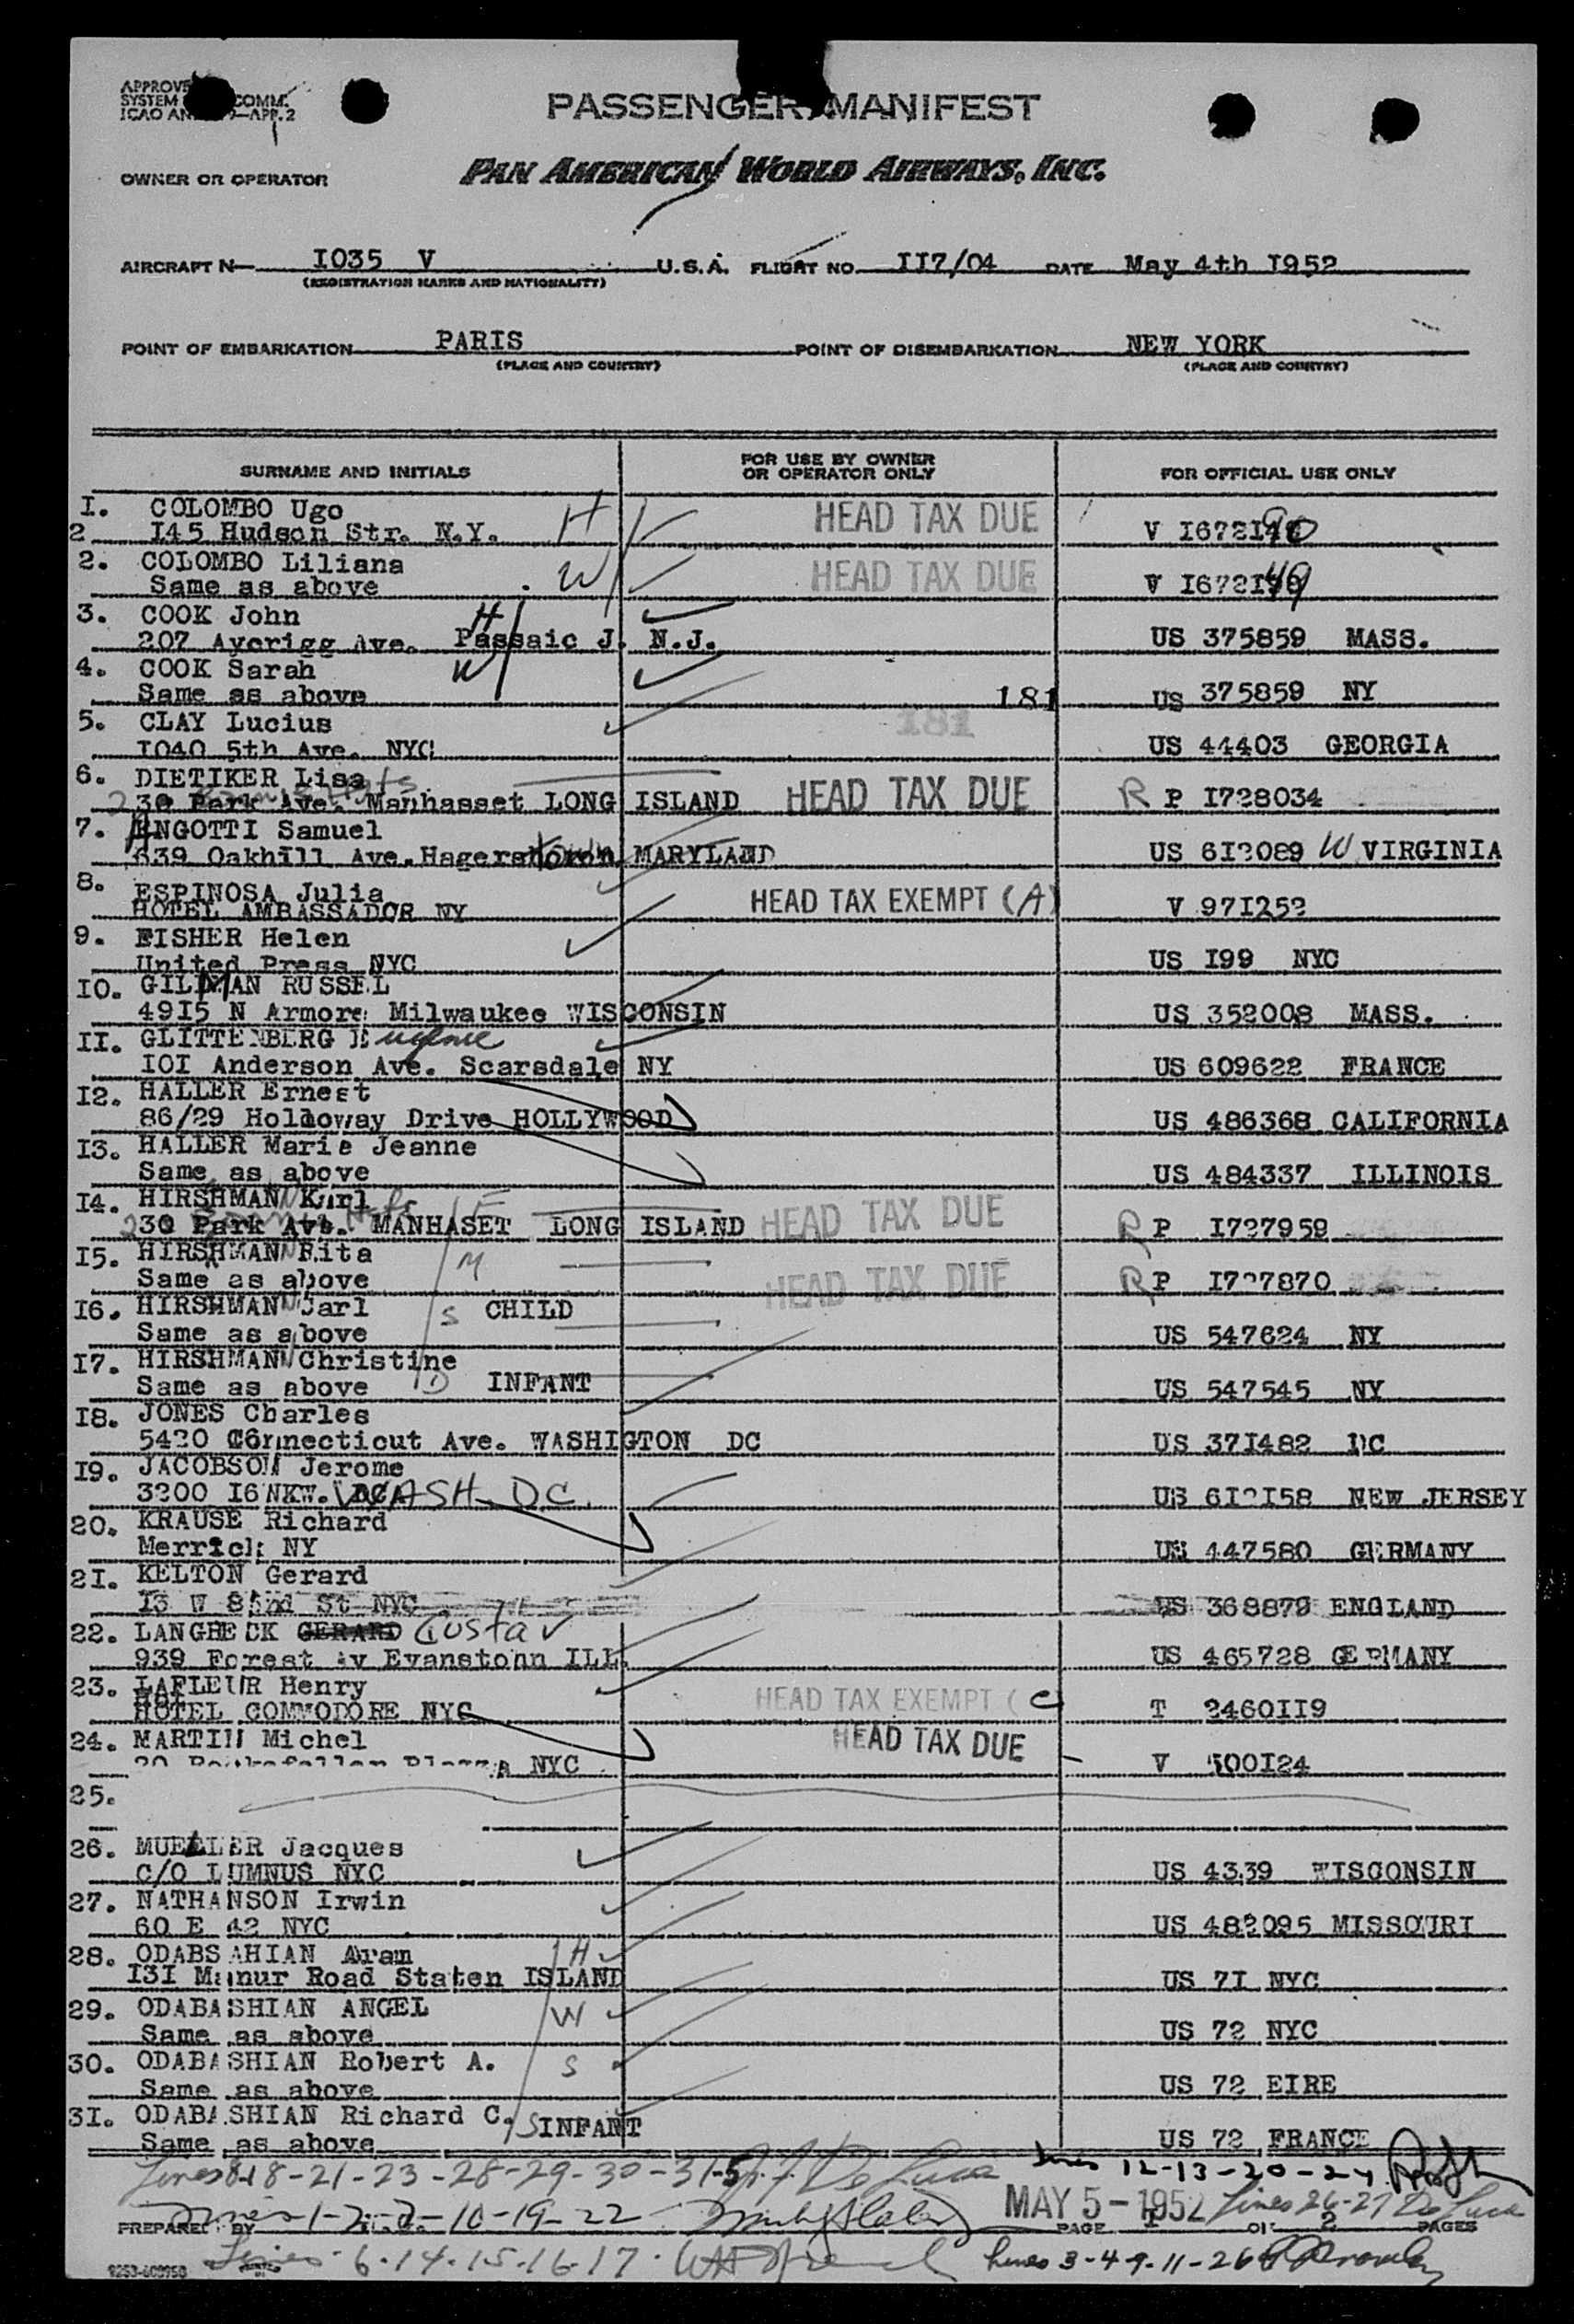 APPROVE COMM.
SYSTEM
ICAO AN 9—APP. 2
PASSENGER MANIFEST
OWNER OR OPERATOR
PAN AMERICAN WORLD AIRWAYS, INC.
AIRCRAFT N— I035 V U.S.A. FLIGHT NO. II7/04 DATE May 4th I952
(REGISTRATION MARKS AND NATIONALITY)
POINT OF EMBARKATION PARIS POINT OF DISEMBARKATION NEW YORK
(PLACE AND COUNTRY) (PLACE AND COUNTRY)
SURNAME AND INITIALS FOR USE BY OWNER OR OPERATOR ONLY FOR OFFICIAL USE ONLY
I. COLOMBO Ugo H HEAD TAX DUE
2 I45 Hudson Str. N.Y. V I672I
2. COLOMBO Liliana W HEAD TAX DUE
Same as above V I672I
3. COOK John H
207 Aycrigg Ave. Passaic J. N.J. US 375859 MASS.
4. COOK Sarah W
Same as above 181 US 375859 NY
5. CLAY Lucius 181
I040 5th Ave. NYC US 44403 GEORGIA
6. DIETIKER Lisa HEAD TAX DUE
30 Park Ave. Manhasset LONG ISLAND R P I728034
7. ANGOTTI Samuel
639 Oakhill Ave. Hagerstown MARYLAND US 6I2089 W VIRGINIA
8. ESPINOSA Julia HEAD TAX EXEMPT (A)
HOTEL AMBASSADOR NY V 97I252
9. FISHER Helen
United Press NYC US I99 NYC
I0. GILMAN RUSSEL
49I5 N Armore Milwaukee WISCONSIN US 352008 MASS.
II. GLITTENBERG Eugene
I0I Anderson Ave. Scarsdale NY US 609622 FRANCE
I2. HALLER Ernest
86/29 Holloway Drive HOLLYWOOD US 486368 CALIFORNIA
I3. HALLER Marie Jeanne
Same as above US 484337 ILLINOIS
I4. HIRSHMANN Karl F HEAD TAX DUE
30 Park Ave. MANHASET LONG ISLAND R P I727959
I5. HIRSHMANN Rita M HEAD TAX DUE
Same as above R P I727870
I6. HIRSHMANN Carl S CHILD
Same as above US 547624 NY
I7. HIRSHMANN Christine D INFANT
Same as above US 547545 NY
I8. JONES Charles
5420 Connecticut Ave. WASHIGTON DC US 37I482 DC
I9. JACOBSON Jerome
3200 I6 NW. WASH. D.C. US 6I2I58 NEW JERSEY
20. KRAUSE Richard
Merrick NY US 447580 GERMANY
2I. KELTON Gerard
I3 W 82nd St NYC US 368879 ENGLAND
22. LANGBECK GERARD Gustav
939 Forest Av Evanstonn ILL. US 465728 GERMANY
23. LAFLEUR Henry HEAD TAX EXEMPT (C
HOTEL COMMODORE NYC T 2460II9
24. MARTIN Michel HEAD TAX DUE
NYC V 500I24
25.
26. MUELLER Jacques
C/O LUMNUS NYC US 4339 WISCONSIN
27. NATHANSON Irwin
60 E 42 NYC US 482095 MISSOURI
28. ODABSAHIAN Aram H
I3I Manur Road Staten ISLAND US 7I NYC
29. ODABASHIAN ANGEL W
Same as above US 72 NYC
30. ODABASHIAN Robert A. S
Same as above US 72 EIRE
3I. ODABASHIAN Richard C. S INFANT
Same as above US 72 FRANCE
Lines 8-18-21-23-28-29-30-31-5 De Luca Lines 12-13-20-24
PREPARED BY Lines 1-2-7-10-19-22 MAY 5-1952 PAGE I OF 2 PAGES Lines 26-27 De Luca
Lines 6.14.15.16.17. Lines 3-4-9-11-26